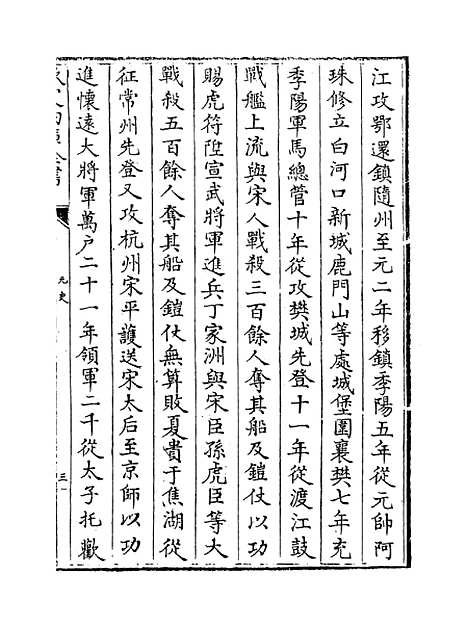 江攻鄂還鎮隨州至元二年移鎮季陽五年從元帥阿
珠修立白河口新城鹿門山等處城堡圍襄樊七年充
季陽軍馬總管十年從攻樊城先登十一年從渡江鼓
戰艦上流與宋人戰殺三百餘人奪其船及鎧仗以功
賜虎符陞宣武將軍進兵丁家洲與宋臣孫虎臣等大
戰殺五百餘人奪其船及鎧仗無算敗夏貴于焦湖從
征常州先登又攻杭州宋平護送宋太后至京師以功
進懷遠大將軍萬户二十一年領軍二千從太子托歡
元史